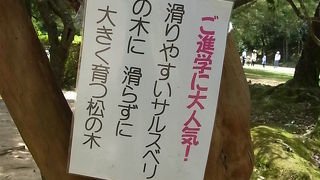 ご進学に大人気!
滑りやすいサルスベリ
の木に 滑らずに
大きく育つ松の木